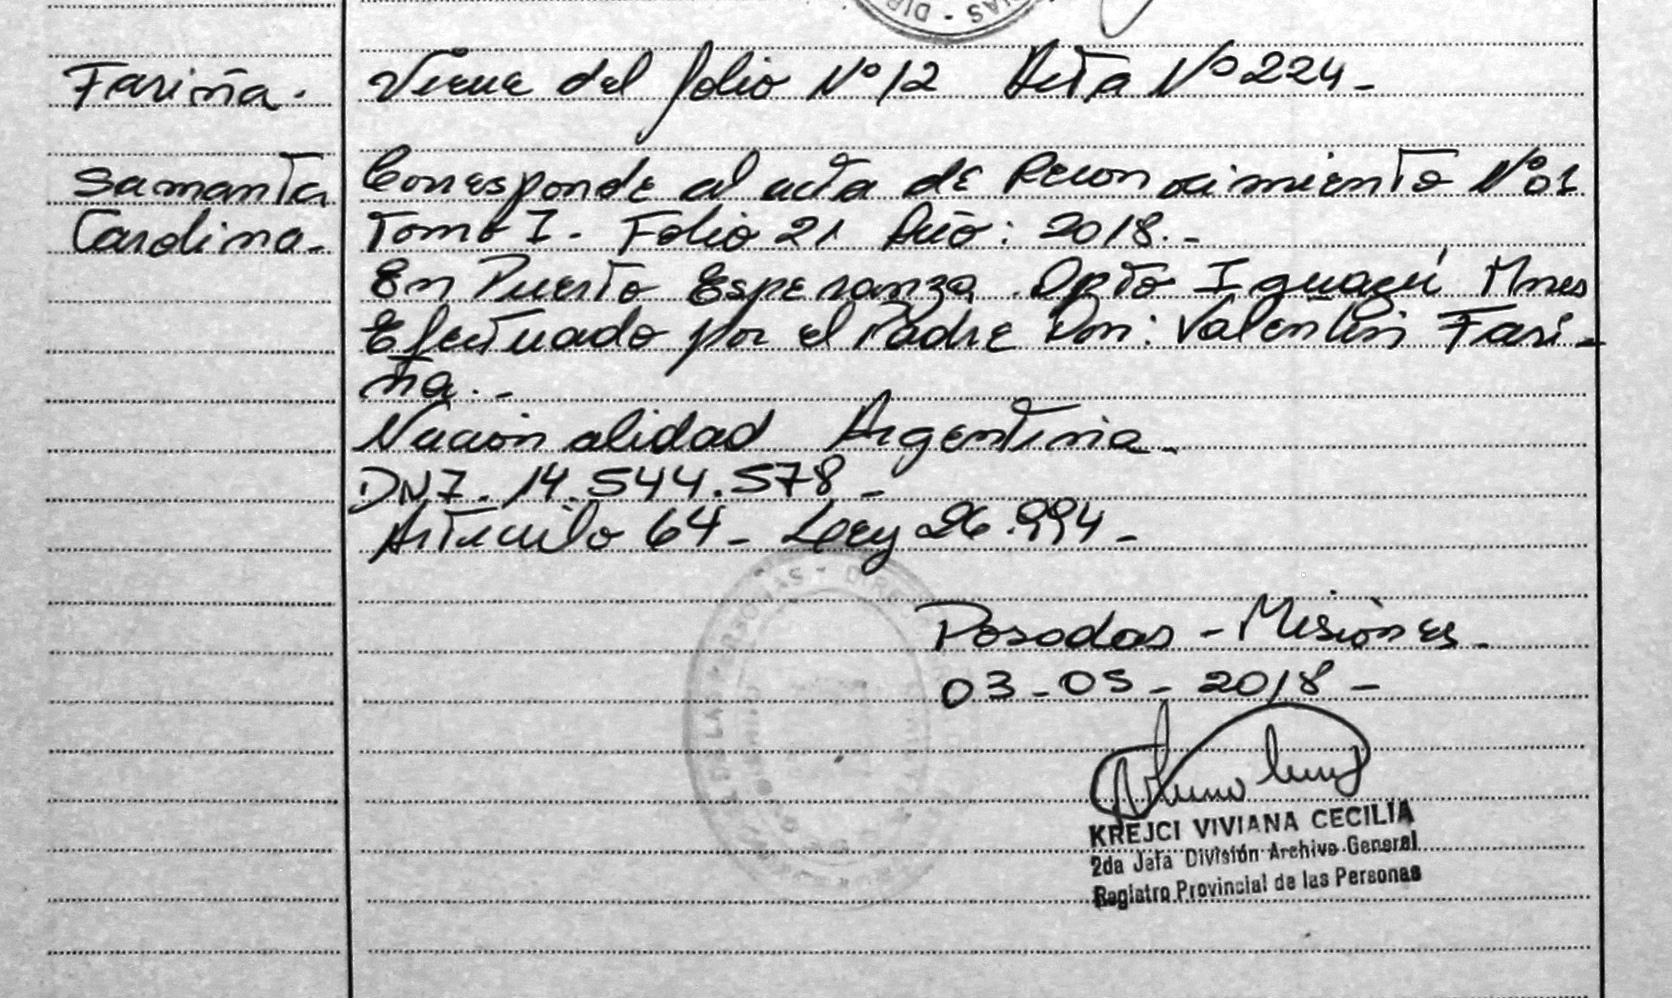 DIR
Fariña.
Viene del folio Nº 12 Acta Nº 224-
Samanta
Corresponde al acta de Reconocimiento Nº 01
Carolina-
Tomo I. Folio 21 Año: 2018.-
En Puerto Esperanza Dpto Iguazú Mnes
Efectuado por el Padre Don: Valentin Fari-
ña.-
Nacionalidad Argentina-
DNI. 14.544.578-
Artículo 64- Ley 26.994-
Posadas - Misiones-
03-05-2018-
KREJCI VIVIANA CECILIA
2da Jefa División Archivo General
Registro Provincial de las Personas